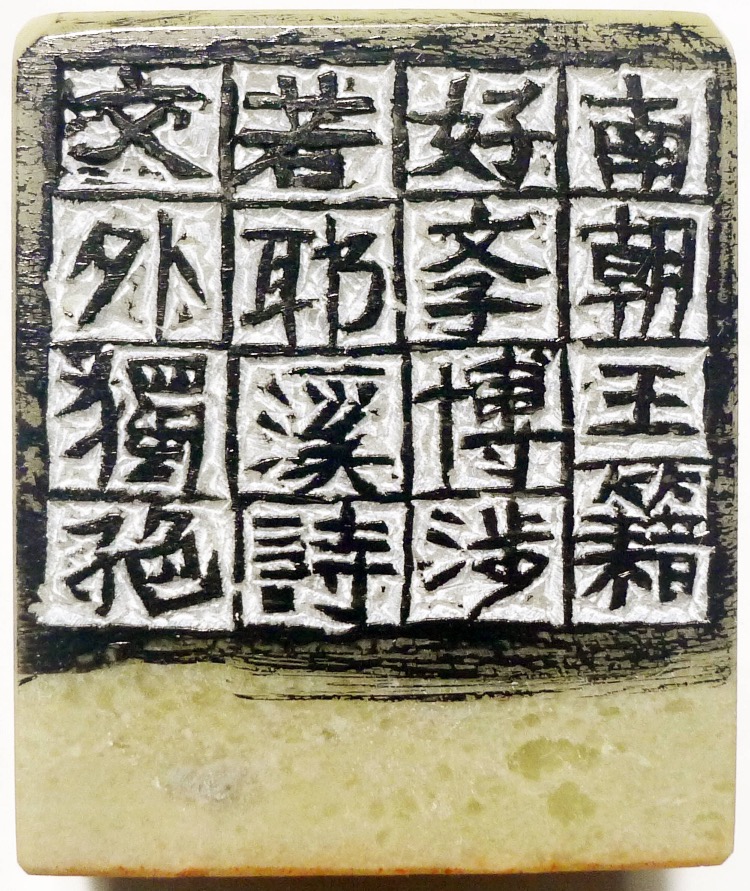 南朝王籍
好斈博涉
若耶溪詩
文外獨絶